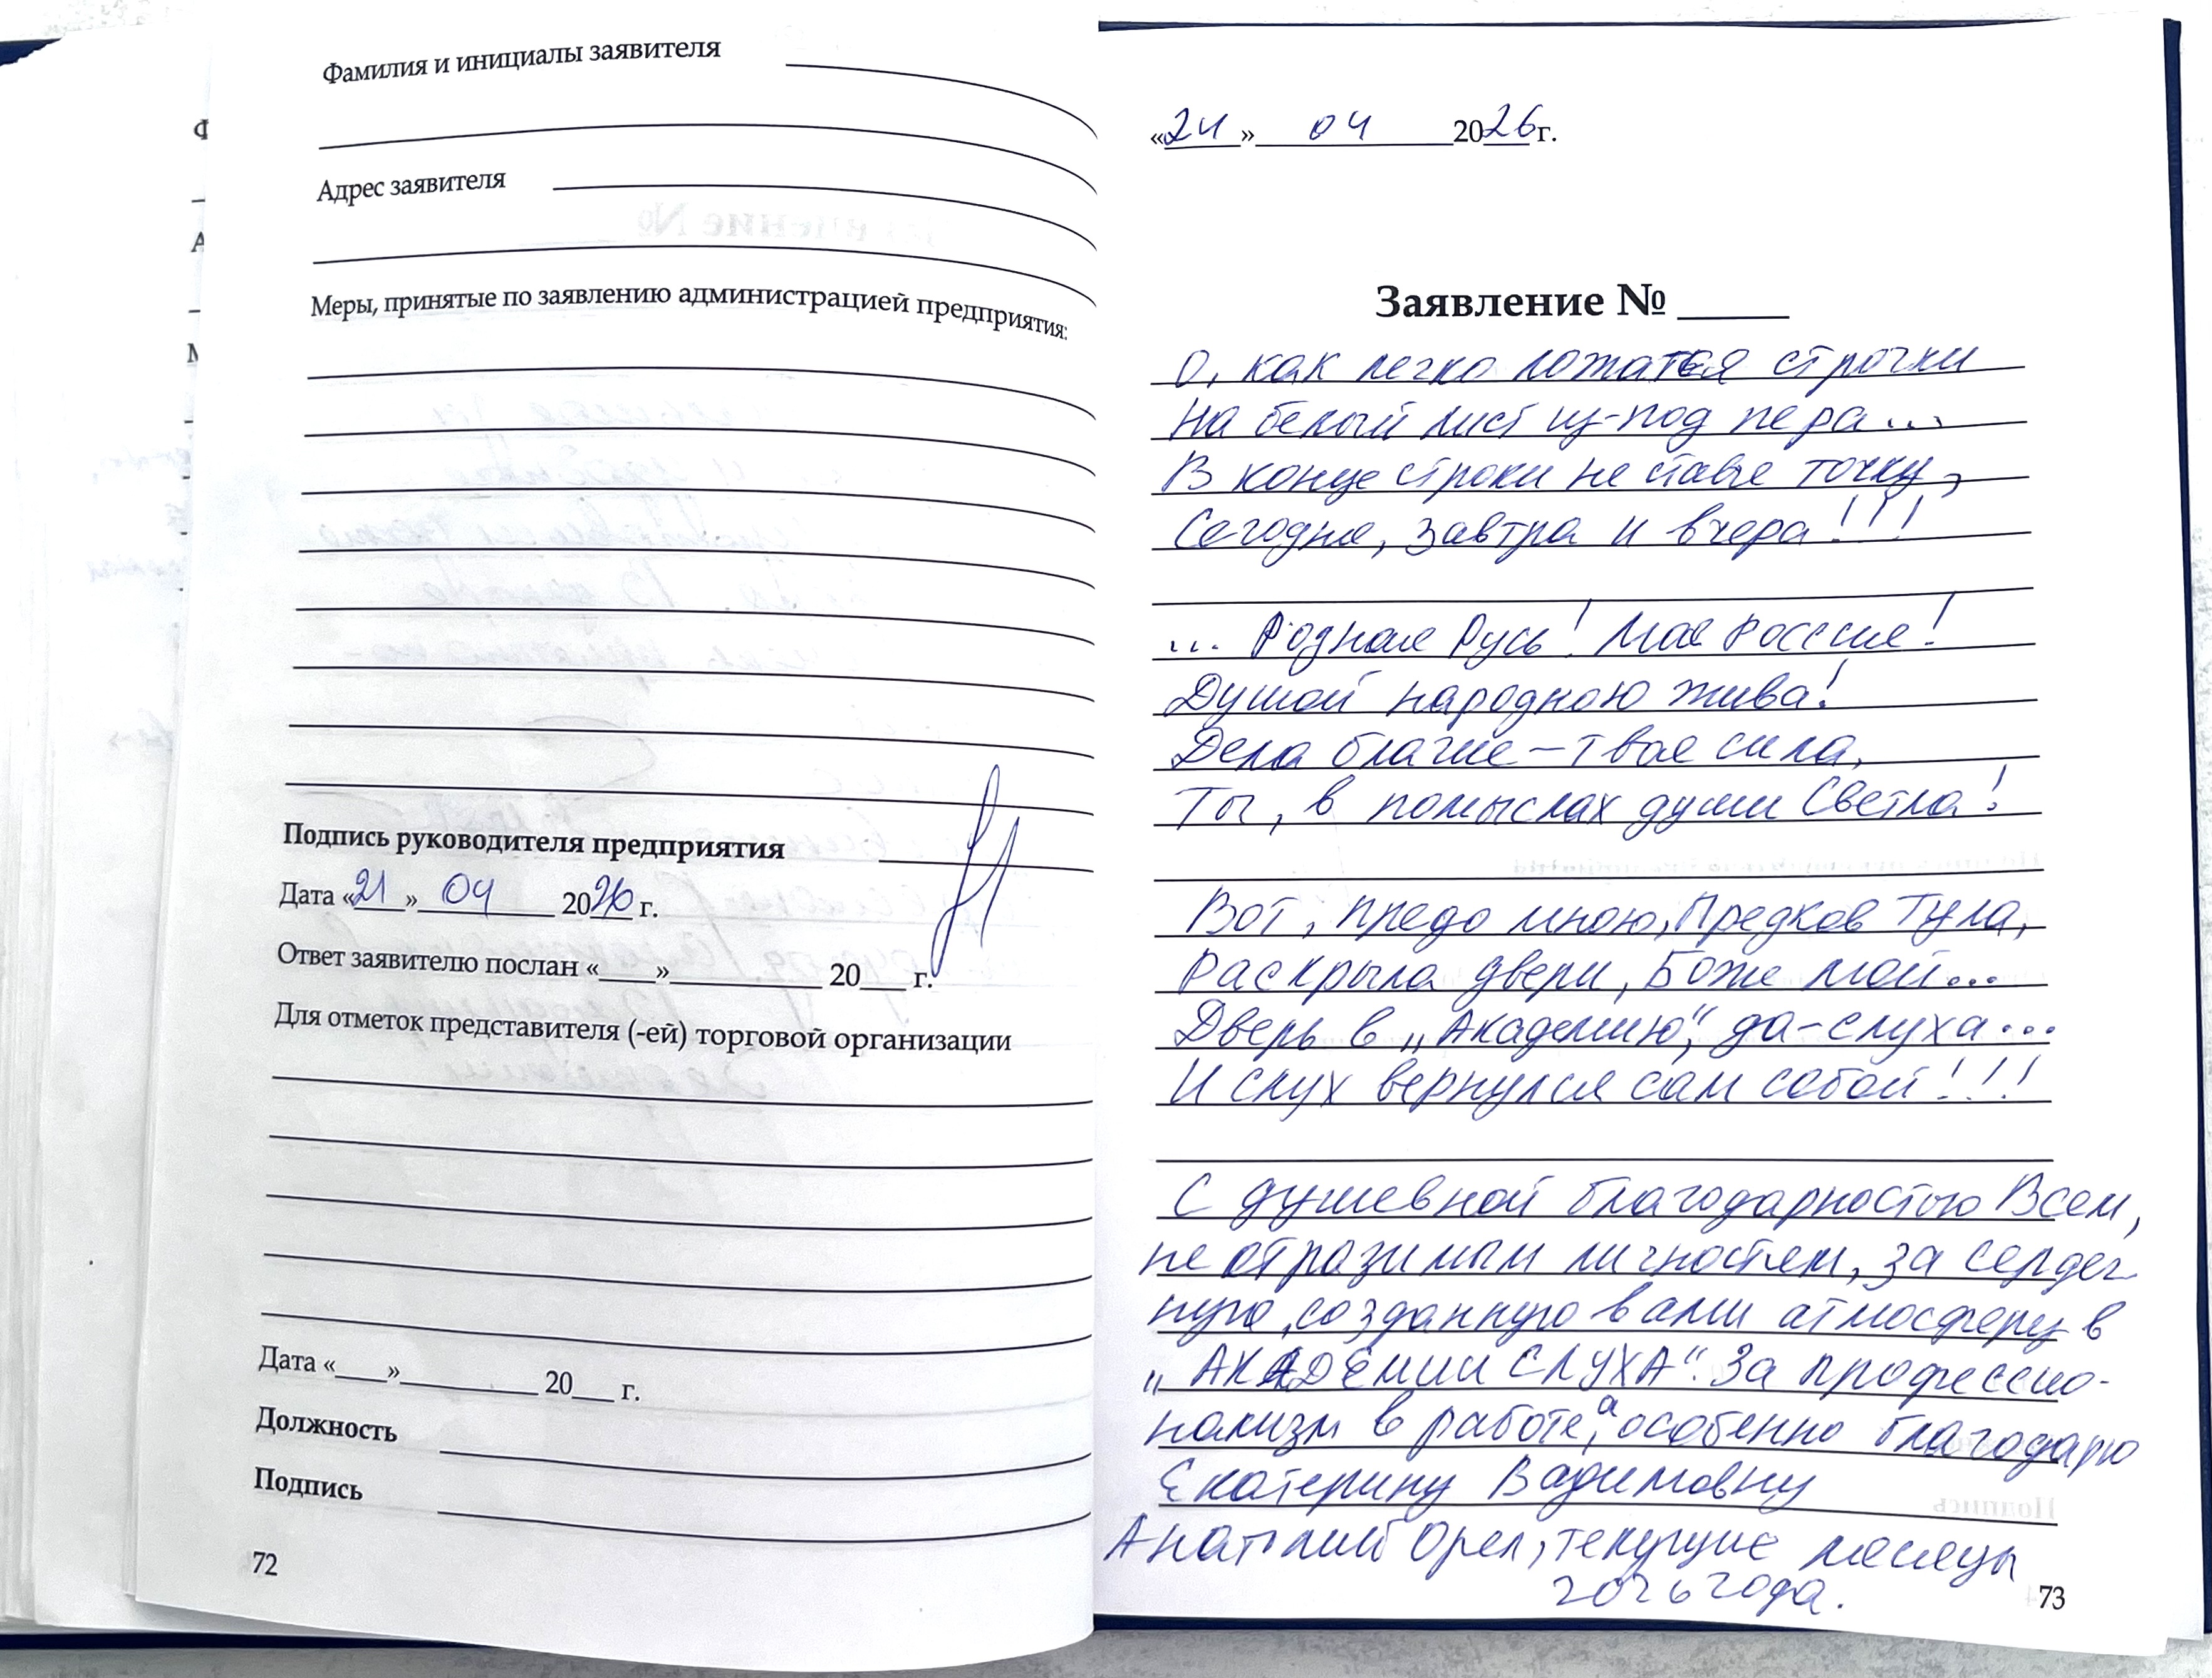 Фамилия и инициалы заявителя
Адрес заявителя
Меры, принятые по заявлению администрацией предприятия:
Подпись руководителя предприятия
Дата «21» 04 2026 г.
Ответ заявителю послан «___» ___ 20___ г.
Для отметок представителя (-ей) торговой организации
Дата «___» ___ 20___ г.
Должность
Подпись
72
«24» 04 2026г.
Заявление № _____
О, как легко ложатся строчки
На белый лист из-под пера...
В конце строки не ставя точку,
Сегодня, завтра и вчера!!!
... Родная Русь! Моя Россия!
Душой народною жива!
Дела благие – твоя сила,
Ты, в помыслах души Светла!
Вот, предо мною, Предков Тула,
Раскрыла двери, Боже мой...
Дверь в „Академию“, да-слуха...
И слух вернулся сам собой!!!
С душевной благодарностью Всем,
не отразимым личностям, за сердеч
ную, созданную вами атмосферу в
„АКАДЕМИИ СЛУХА“. За профессио-
нализм в работе, а особенно благодарю
Екатерину Вадимовну
Анатолий Орел, текущие месяцы
2026 года.
73